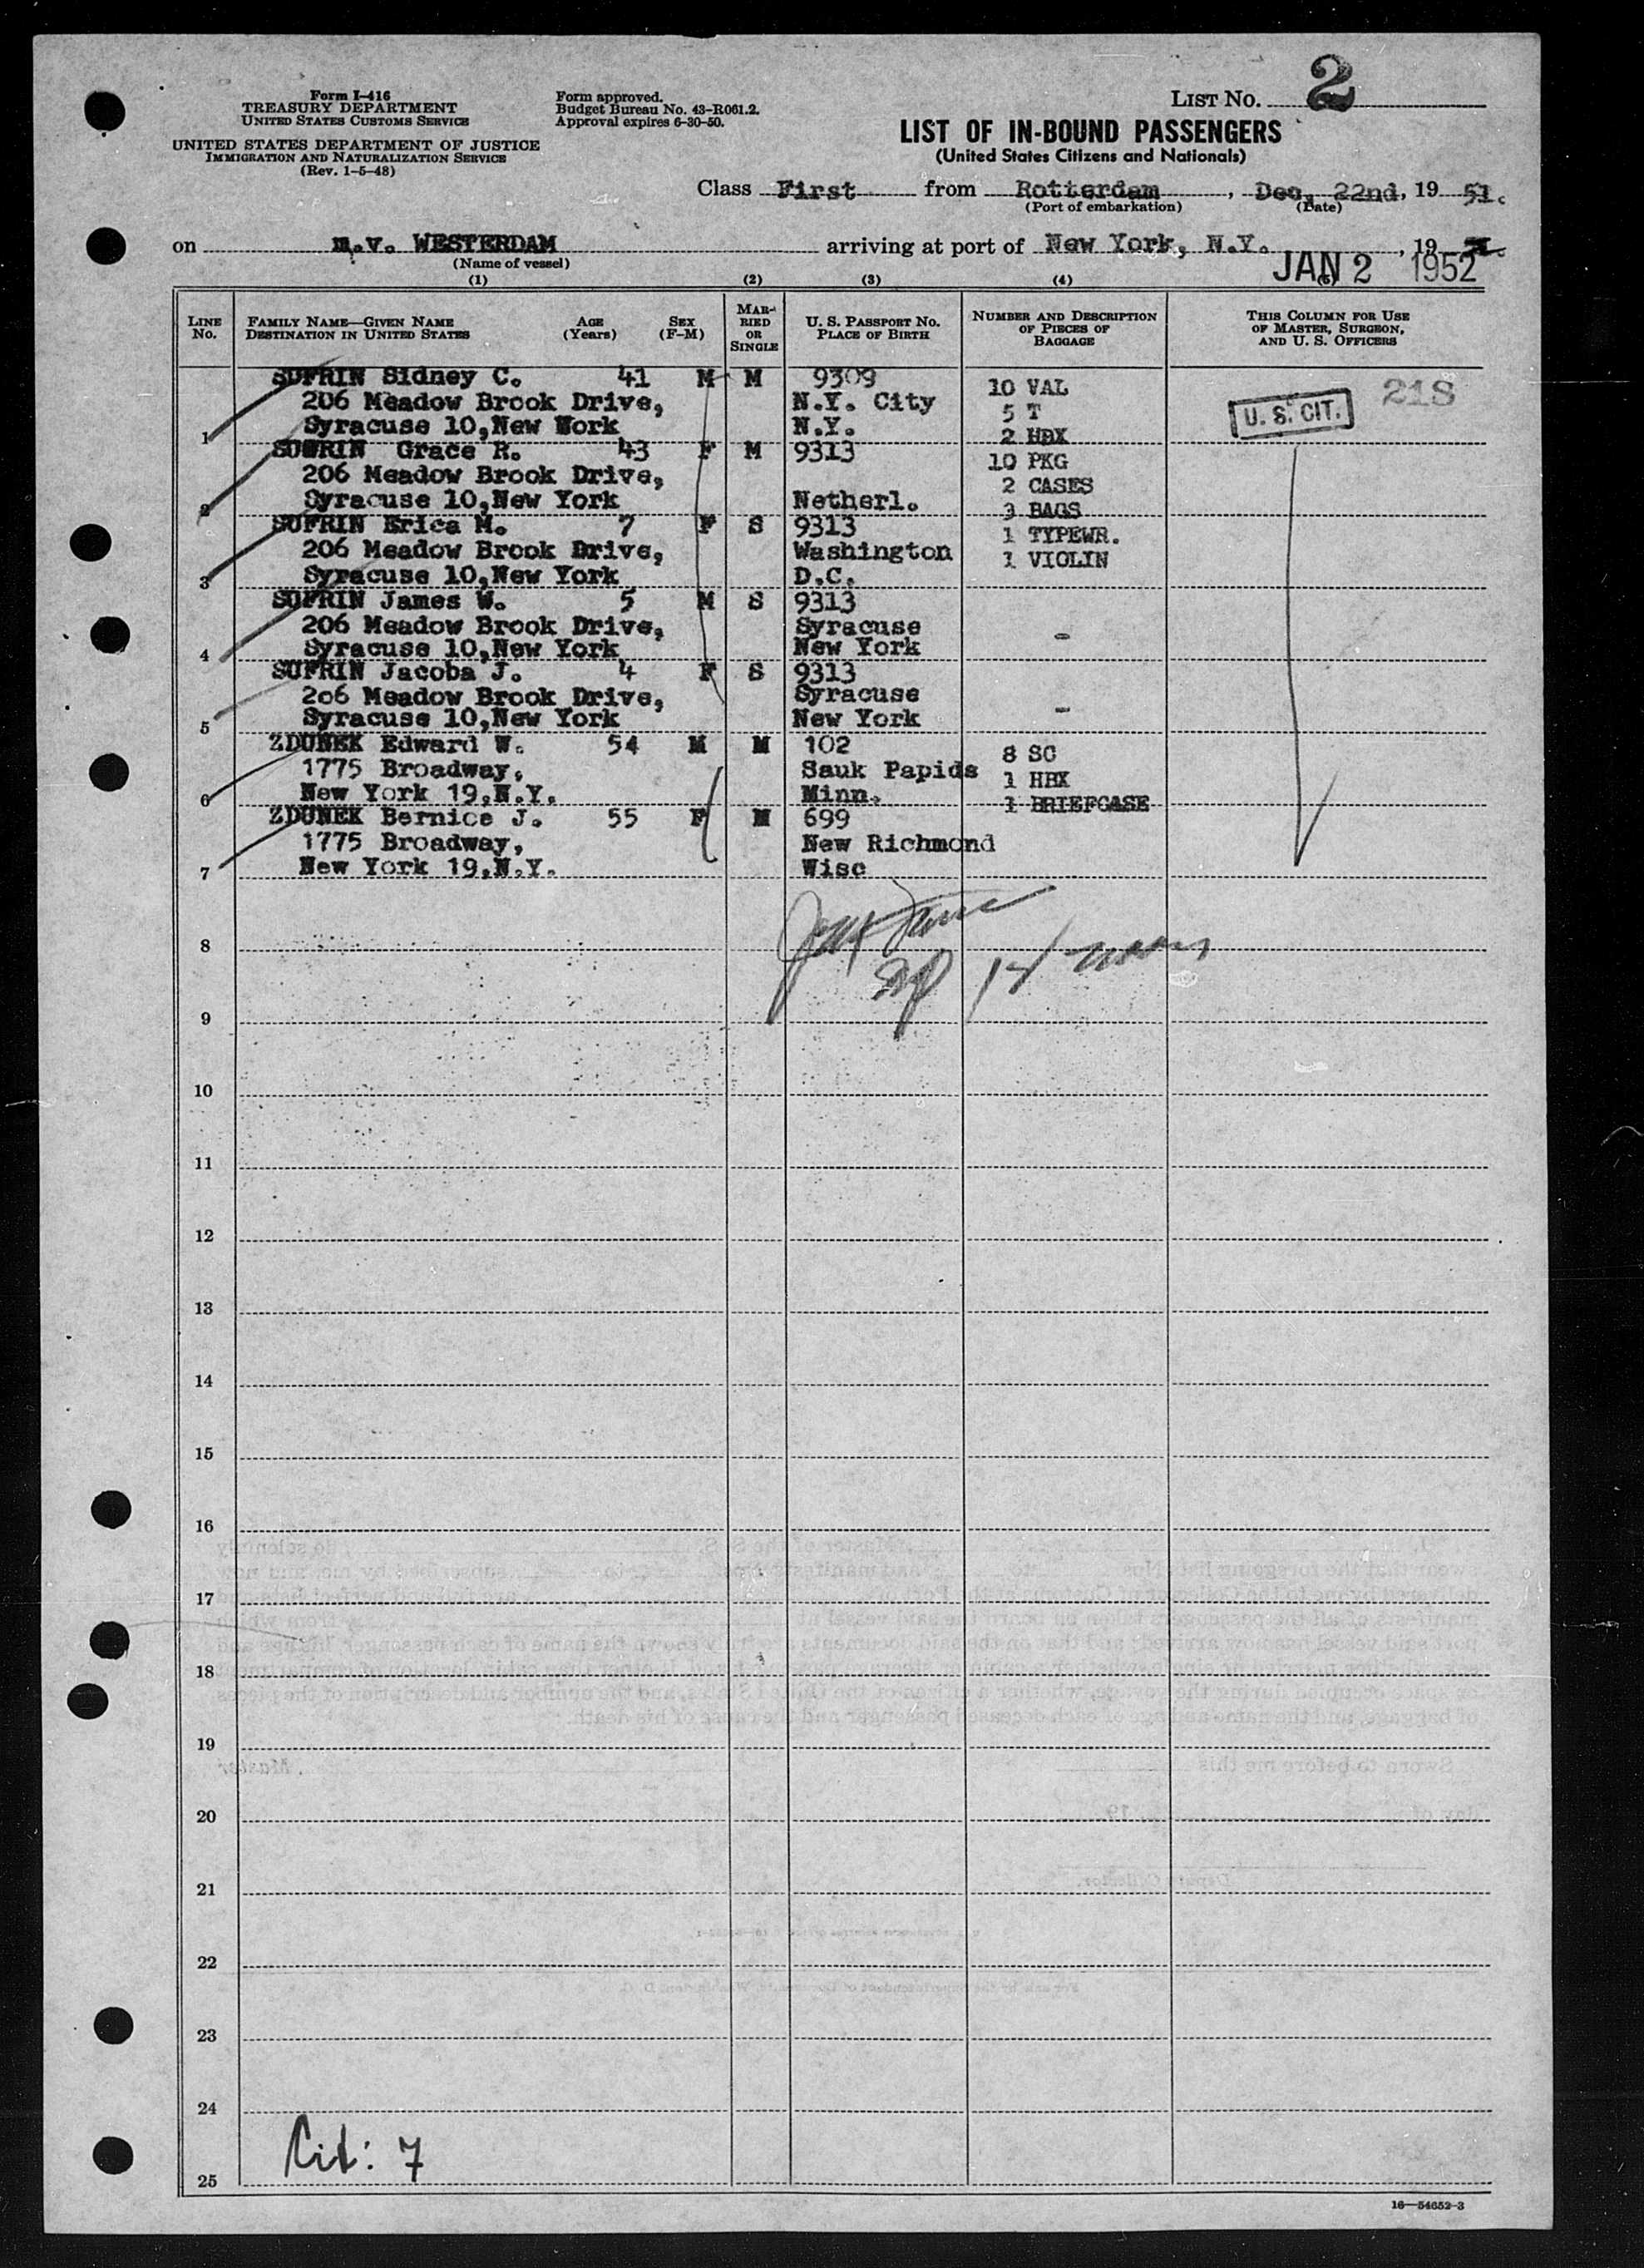 Form I-416
TREASURY DEPARTMENT
UNITED STATES CUSTOMS SERVICE
UNITED STATES DEPARTMENT OF JUSTICE
IMMIGRATION AND NATURALIZATION SERVICE
(Rev. 1-5-48)
Form approved.
Budget Bureau No. 43-R061.2.
Approval expires 6-30-50.
LIST NO. 2
LIST OF IN-BOUND PASSENGERS
(United States Citizens and Nationals)
Class First from Rotterdam, Dec. 22nd, 19 51.
(Port of embarkation) (Date)
on m.v. WESTERDAM arriving at port of New York, N.Y., 19
(Name of vessel)
JAN 2 1952
(1) (2) (3) (4) (5)
LINE NO.
FAMILY NAME—GIVEN NAME DESTINATION IN UNITED STATES
AGE (Years)
SEX (F-M)
MARRIED OR SINGLE
U. S. PASSPORT NO. PLACE OF BIRTH
NUMBER AND DESCRIPTION OF PIECES OF BAGGAGE
THIS COLUMN FOR USE OF MASTER, SURGEON, AND U. S. OFFICERS
SUFRIN Sidney C. 41 M M 9309
206 Meadow Brook Drive, N.Y. City 10 VAL
1 Syracuse 10,New Work N.Y. 5 T
2 HBX
U. S. CIT. 218
SUFRIN Grace R. 43 F M 9313 10 PKG
206 Meadow Brook Drive, 2 CASES
2 Syracuse 10,New York Netherl. 3 BAGS
SUFRIN Erica M. 7 F S 9313 1 TYPEWR.
206 Meadow Brook Drive, Washington 1 VIOLIN
3 Syracuse 10,New York D.C.
SUFRIN James W. 5 M S 9313
206 Meadow Brook Drive, Syracuse -
4 Syracuse 10,New York New York
SUFRIN Jacoba J. 4 F S 9313
206 Meadow Brook Drive, Syracuse
5 Syracuse 10,New York New York -
ZDUNEK Edward W. 54 M M 102 8 SC
1775 Broadway, Sauk Papids 1 HBX
6 New York 19,N.Y. Minn. 1 BRIEFCASE
ZDUNEK Bernice J. 55 F M 699
1775 Broadway, New Richmond
7 New York 19,N.Y. Wisc
8
9
10
11
12
13
14
15
16
17
18
19
20
21
22
23
24
Cit: 7
25
16—54652-3